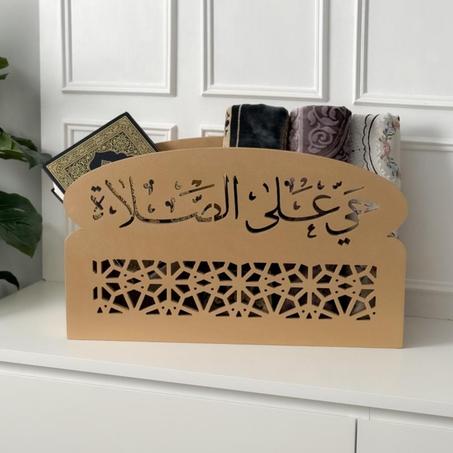 حَيَّ عَلَى الصَّلَاة